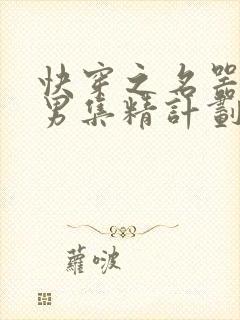 快穿之名器
男集精計劃
蘿啵